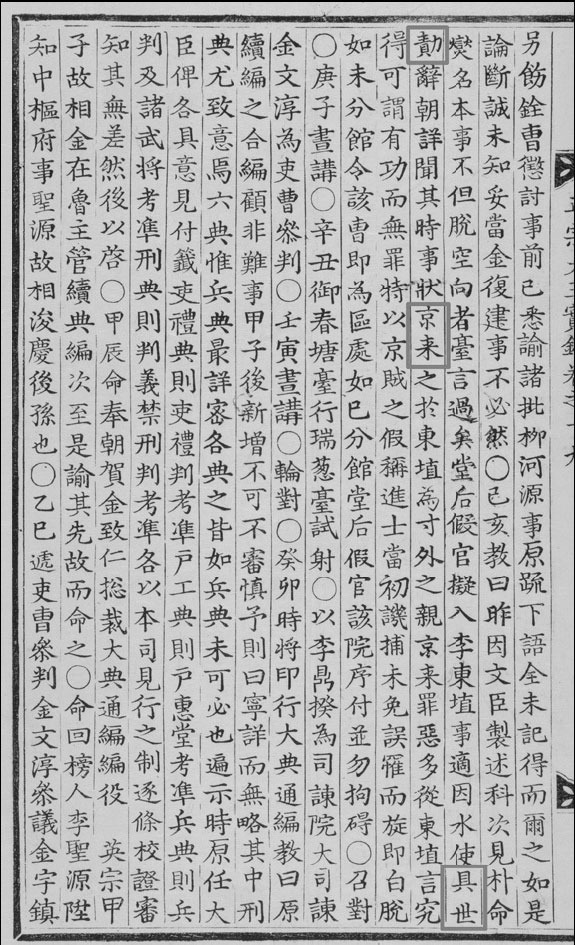 另飭銓曹懲討事前已悉諭諸批柳河源事原疏下語全未記得而爾之如是
論斷誠未知妥當金復建事不必然○己亥教曰昨因文臣製述科次見朴命
爕名本事不但脫空向者臺言過矣堂后假官擬入李東埴事適因水使具世
勣辭朝詳聞其時事狀京来之於東埴為寸外之親京来罪惡多從東埴言究
得可謂有功而無罪特以京賊之假稱進士當初譏捕未免誤罹而旋即白脫
如未分館令該曹即為區處如已分館堂后假官該院序付並勿拘碍○召對
○庚子晝講○辛丑御春塘臺行瑞葱臺試射○以李鼎揆為司諫院大司諫
金文淳為吏曹叅判○壬寅晝講○輪對○癸卯時将印行大典通編教曰原
續編之合編顧非難事甲子後新增不可不審慎予則曰寧詳而無略其中刑
典尤致意焉六典惟兵典最詳密各典之皆如兵典未可必也遍示時原任大
臣俾各具意見付籤吏禮典則吏禮判考準户工典則户惠堂考準兵典則兵
判及諸武将考準刑典則判義禁刑判考準各以本司見行之制逐條校證審
知其無差然後以啓○甲辰命奉朝賀金致仁総裁大典通編編役　英宗甲
子故相金在魯主管續典編次至是諭其先故而命之○命回榜人李聖源陞
知中樞府事聖源故相浚慶後孫也○乙巳遞吏曹叅判金文淳叅議金字鎮